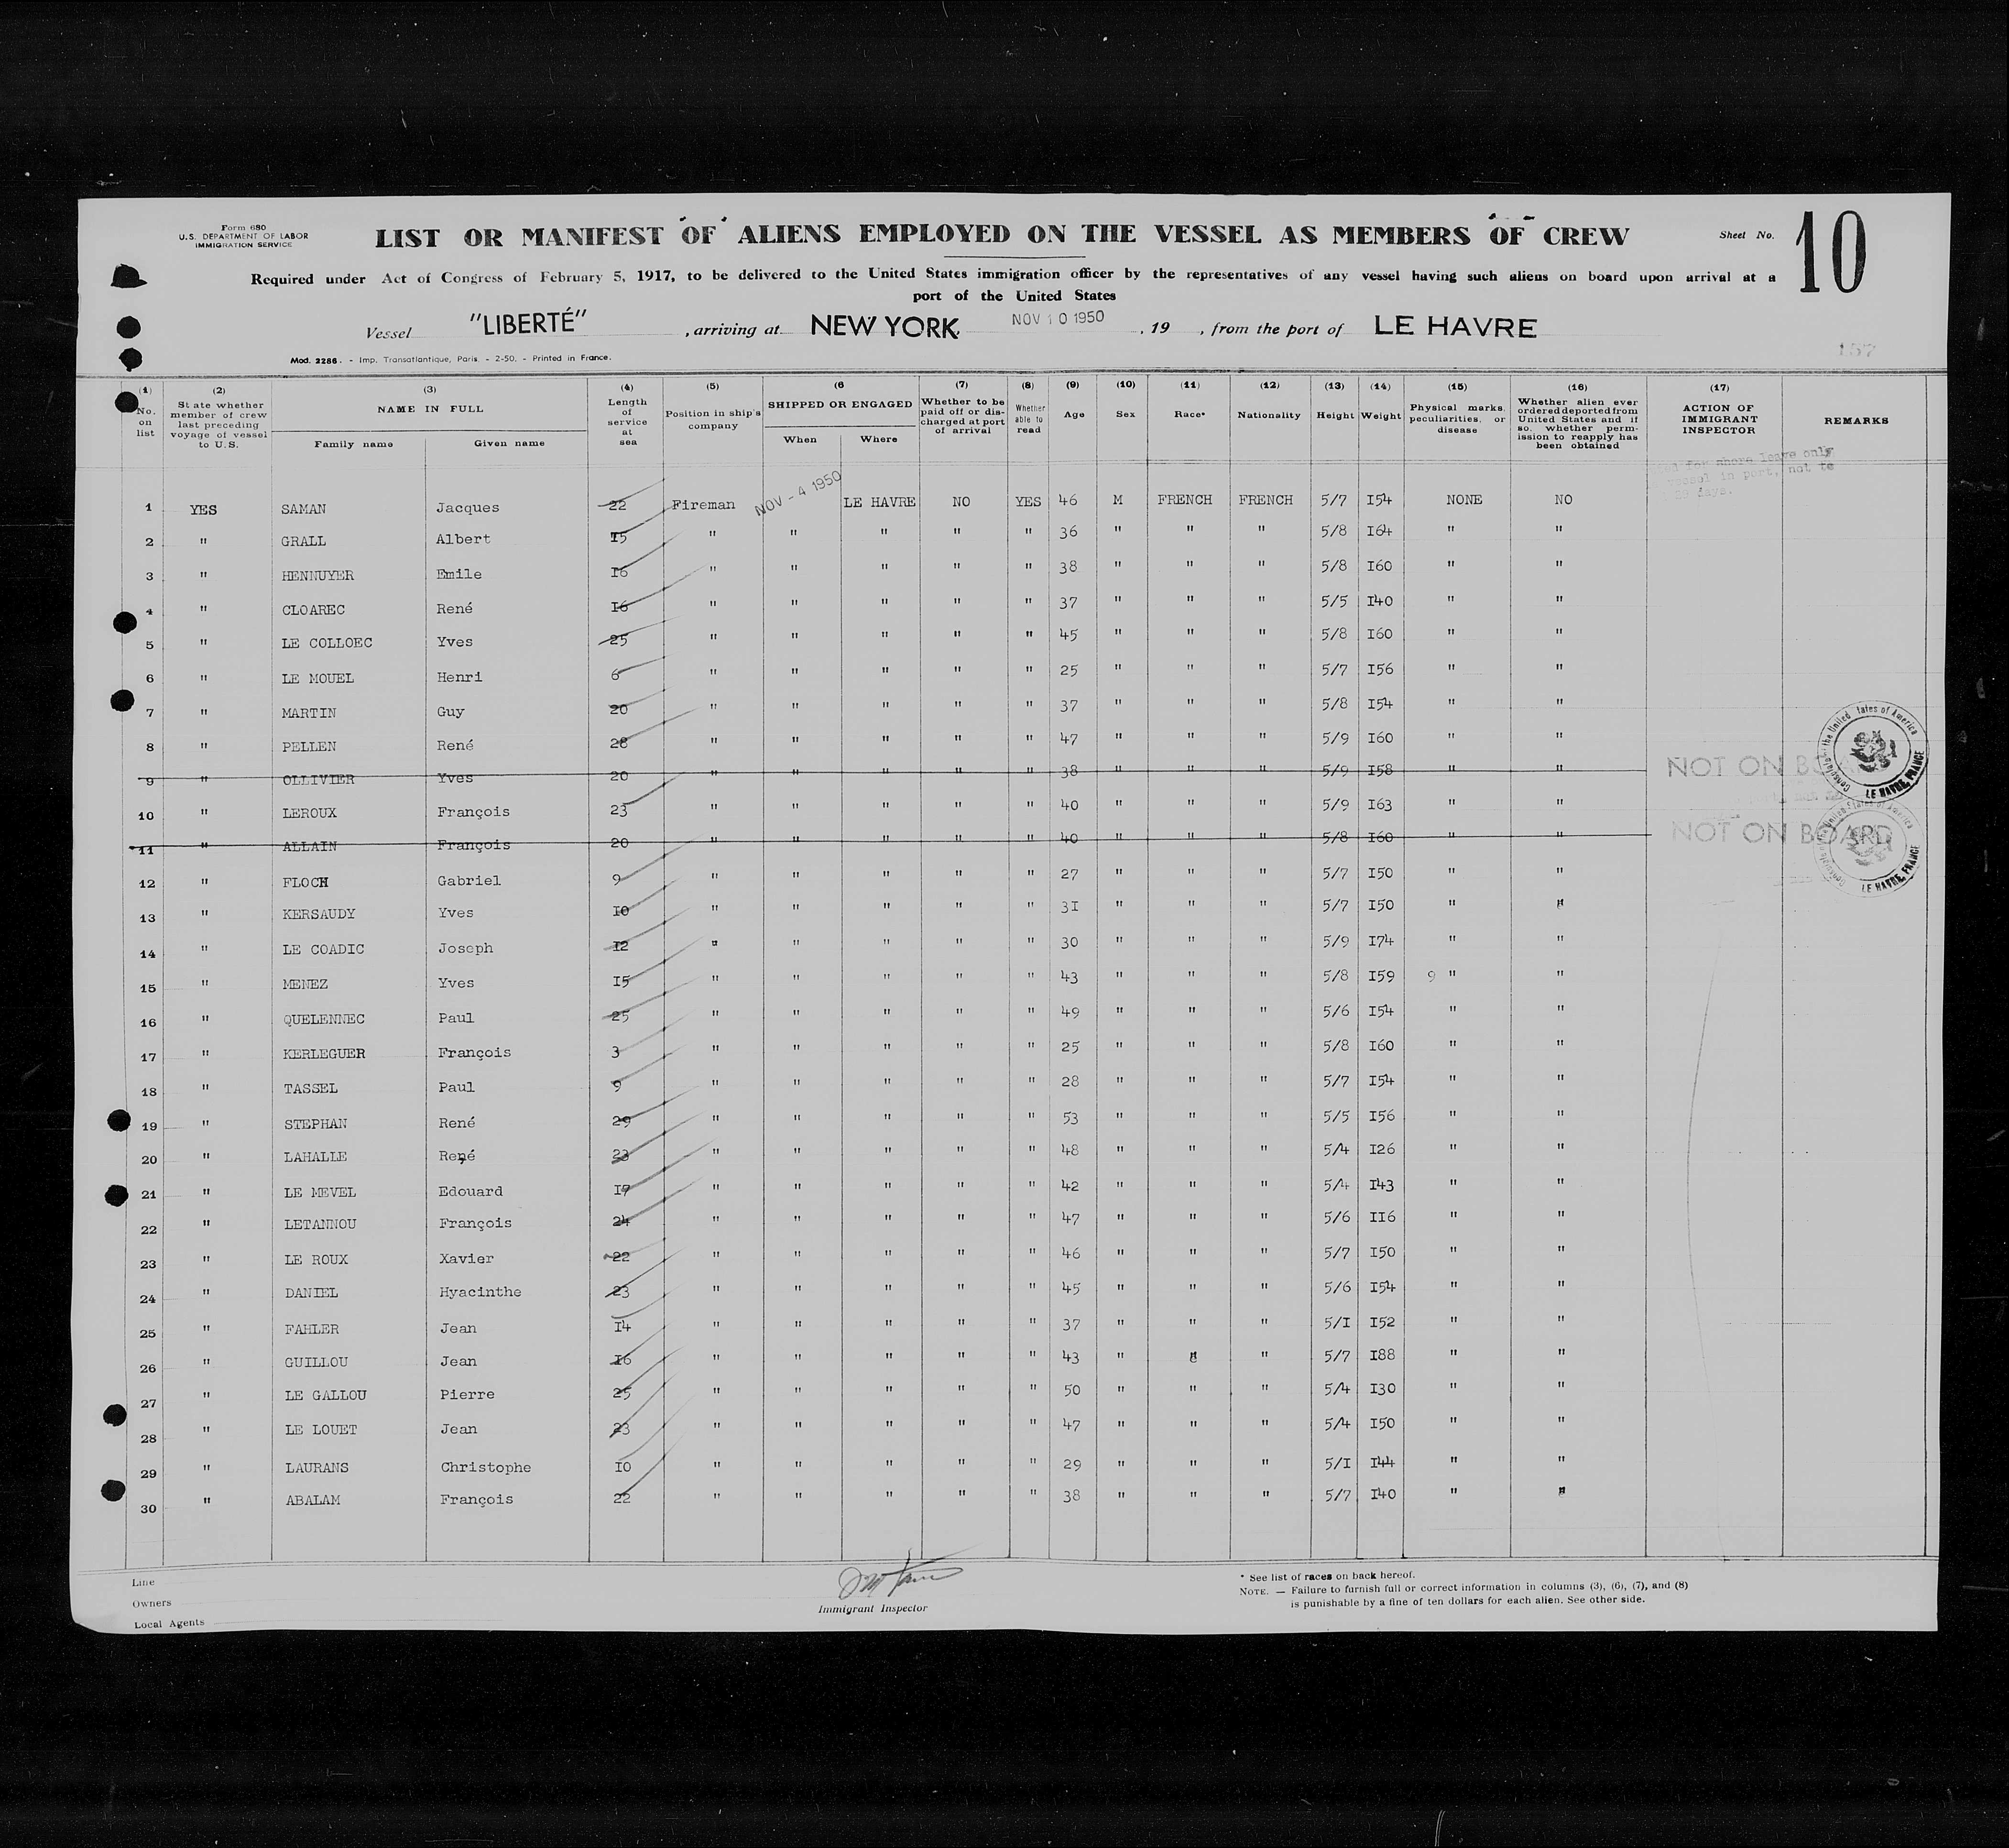 Form 680
U.S. DEPARTMENT OF LABOR
IMMIGRATION SERVICE
LIST OR MANIFEST OF ALIENS EMPLOYED ON THE VESSEL AS MEMBERS OF CREW
Sheet No. 10
Required under Act of Congress of February 5, 1917, to be delivered to the United States immigration officer by the representatives of any vessel having such aliens on board upon arrival at a
port of the United States
Vessel "LIBERTÉ", arriving at NEW YORK, NOV 10 1950, 19 , from the port of LE HAVRE
Mod. 2286. - Imp. Transatlantique, Paris. - 2-50. - Printed in France.
157
(1) (2) (3) (4) (5) (6 (7) (8) (9) (10) (11) (12) (13) (14) (15) (16) (17)
No. on list
State whether member of crew last preceding voyage of vessel to U.S.
NAME IN FULL
Family name Given name
Length of service at sea
Position in ship's company
SHIPPED OR ENGAGED
When Where
Whether to be paid off or discharged at port of arrival
Whether able to read
Age
Sex
Race*
Nationality
Height
Weight
Physical marks, peculiarities, or disease
Whether alien ever ordered deported from United States and if so, whether permission to reapply has been obtained
ACTION OF IMMIGRANT INSPECTOR
REMARKS
for shore leave only
vessel in port, not to
days.
1 YES SAMAN Jacques 22 Fireman NOV - 4 1950 LE HAVRE NO YES 46 M FRENCH FRENCH 5/7 I54 NONE NO
2 " GRALL Albert I5 " " " " " 36 " " " 5/8 I64 " "
3 " HENNUYER Emile I6 " " " " " 38 " " " 5/8 I60 " "
4 " CLOAREC René I6 " " " " " 37 " " " 5/5 I40 " "
5 " LE COLLOEC Yves 25 " " " " " 45 " " " 5/8 I60 " "
6 " LE MOUEL Henri 6 " " " " " 25 " " " 5/7 I56 " "
7 " MARTIN Guy 20 " " " " " 37 " " " 5/8 I54 " "
8 " PELLEN René 28 " " " " " 47 " " " 5/9 I60 " "
9 " OLLIVIER Yves 20 " " " " " 38 " " " 5/9 I58 " " NOT ON BOARD
10 " LEROUX François 23 " " " " " 40 " " " 5/9 I63 " "
11 " ALLAIN François 20 " " " " " 40 " " " 5/8 I60 " " NOT ON BOARD
12 " FLOCH Gabriel 9 " " " " " 27 " " " 5/7 I50 " "
13 " KERSAUDY Yves I0 " " " " " 3I " " " 5/7 I50 " "
14 " LE COADIC Joseph I2 " " " " " 30 " " " 5/9 I74 " "
15 " MENEZ Yves I5 " " " " " 43 " " " 5/8 I59 9 " "
16 " QUELENNEC Paul 25 " " " " " 49 " " " 5/6 I54 " "
17 " KERLEGUER François 3 " " " " " 25 " " " 5/8 I60 " "
18 " TASSEL Paul 9 " " " " " 28 " " " 5/7 I54 " "
19 " STEPHAN René 29 " " " " " 53 " " " 5/5 I56 " "
20 " LAHALLE René 23 " " " " " 48 " " " 5/4 I26 " "
21 " LE MEVEL Edouard I7 " " " " " 42 " " " 5/4 I43 " "
22 " LETANNOU François 24 " " " " " 47 " " " 5/6 II6 " "
23 " LE ROUX Xavier 22 " " " " " 46 " " " 5/7 I50 " "
24 " DANIEL Hyacinthe 23 " " " " " 45 " " " 5/6 I54 " "
25 " FAHLER Jean I4 " " " " " 37 " " " 5/I I52 " "
26 " GUILLOU Jean I6 " " " " " 43 " " " 5/7 I88 " "
27 " LE GALLOU Pierre 25 " " " " " 50 " " " 5/4 I30 " "
28 " LE LOUET Jean 23 " " " " " 47 " " " 5/4 I50 " "
29 " LAURANS Christophe I0 " " " " " 29 " " " 5/I I44 " "
30 " ABALAM François 22 " " " " " 38 " " " 5/7 I40 " "
Consulate of the United States of America LE HAVRE, FRANCE
Consulate of the United States of America LE HAVRE, FRANCE
Line
Owners
Local Agents
Immigrant Inspector
* See list of races on back hereof.
NOTE. — Failure to furnish full or correct information in columns (3), (6), (7), and (8)
is punishable by a fine of ten dollars for each alien. See other side.